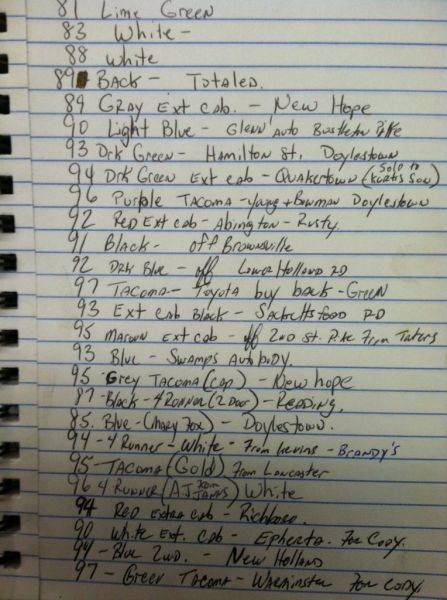 81 Lime Green
83 White -
88 White
89 BACK - Totaled.
89 GRAY Ext cab. - New Hope
90 Light Blue - Glenn Auto Bustleton Pike
93 Drk Green - Hamilton St. Doylestown
94 Drk Green Ext cab - Quakertown (Sold to Kurtis Son)
96 Purple TACOMA - young + Bowman Doylestown
92 RED Ext cab - Abington - Rusty.
91 Black - off Brownsville
92 DRK Blue - off Lower Holland RD
97 TACOMA - Toyota buy back - Green
93 Ext cab Black - Sacketts ford RD
95 Maroon Ext cab - off 2nd St. Pike From Taters
93 Blue - Swamps Autobody.
95 Grey TACOMA (cap) - New hope
87 - Black - 4 Runner (2 Door) - Reading.
85. Blue - (Hary Fox) - Doylestown.
94 - 4 Runner - White - From - Brandy's
95 - TACOMA (Gold) From Lancaster
96 4 Runner (AJ From JAMES) White
94 Red Extra cab - Richboro.
90 White Ext. Cab - Epherta. For Cody.
94 - Blue 2wd. - New Holland
97 - Green Tacoma - Warminster For Cody.